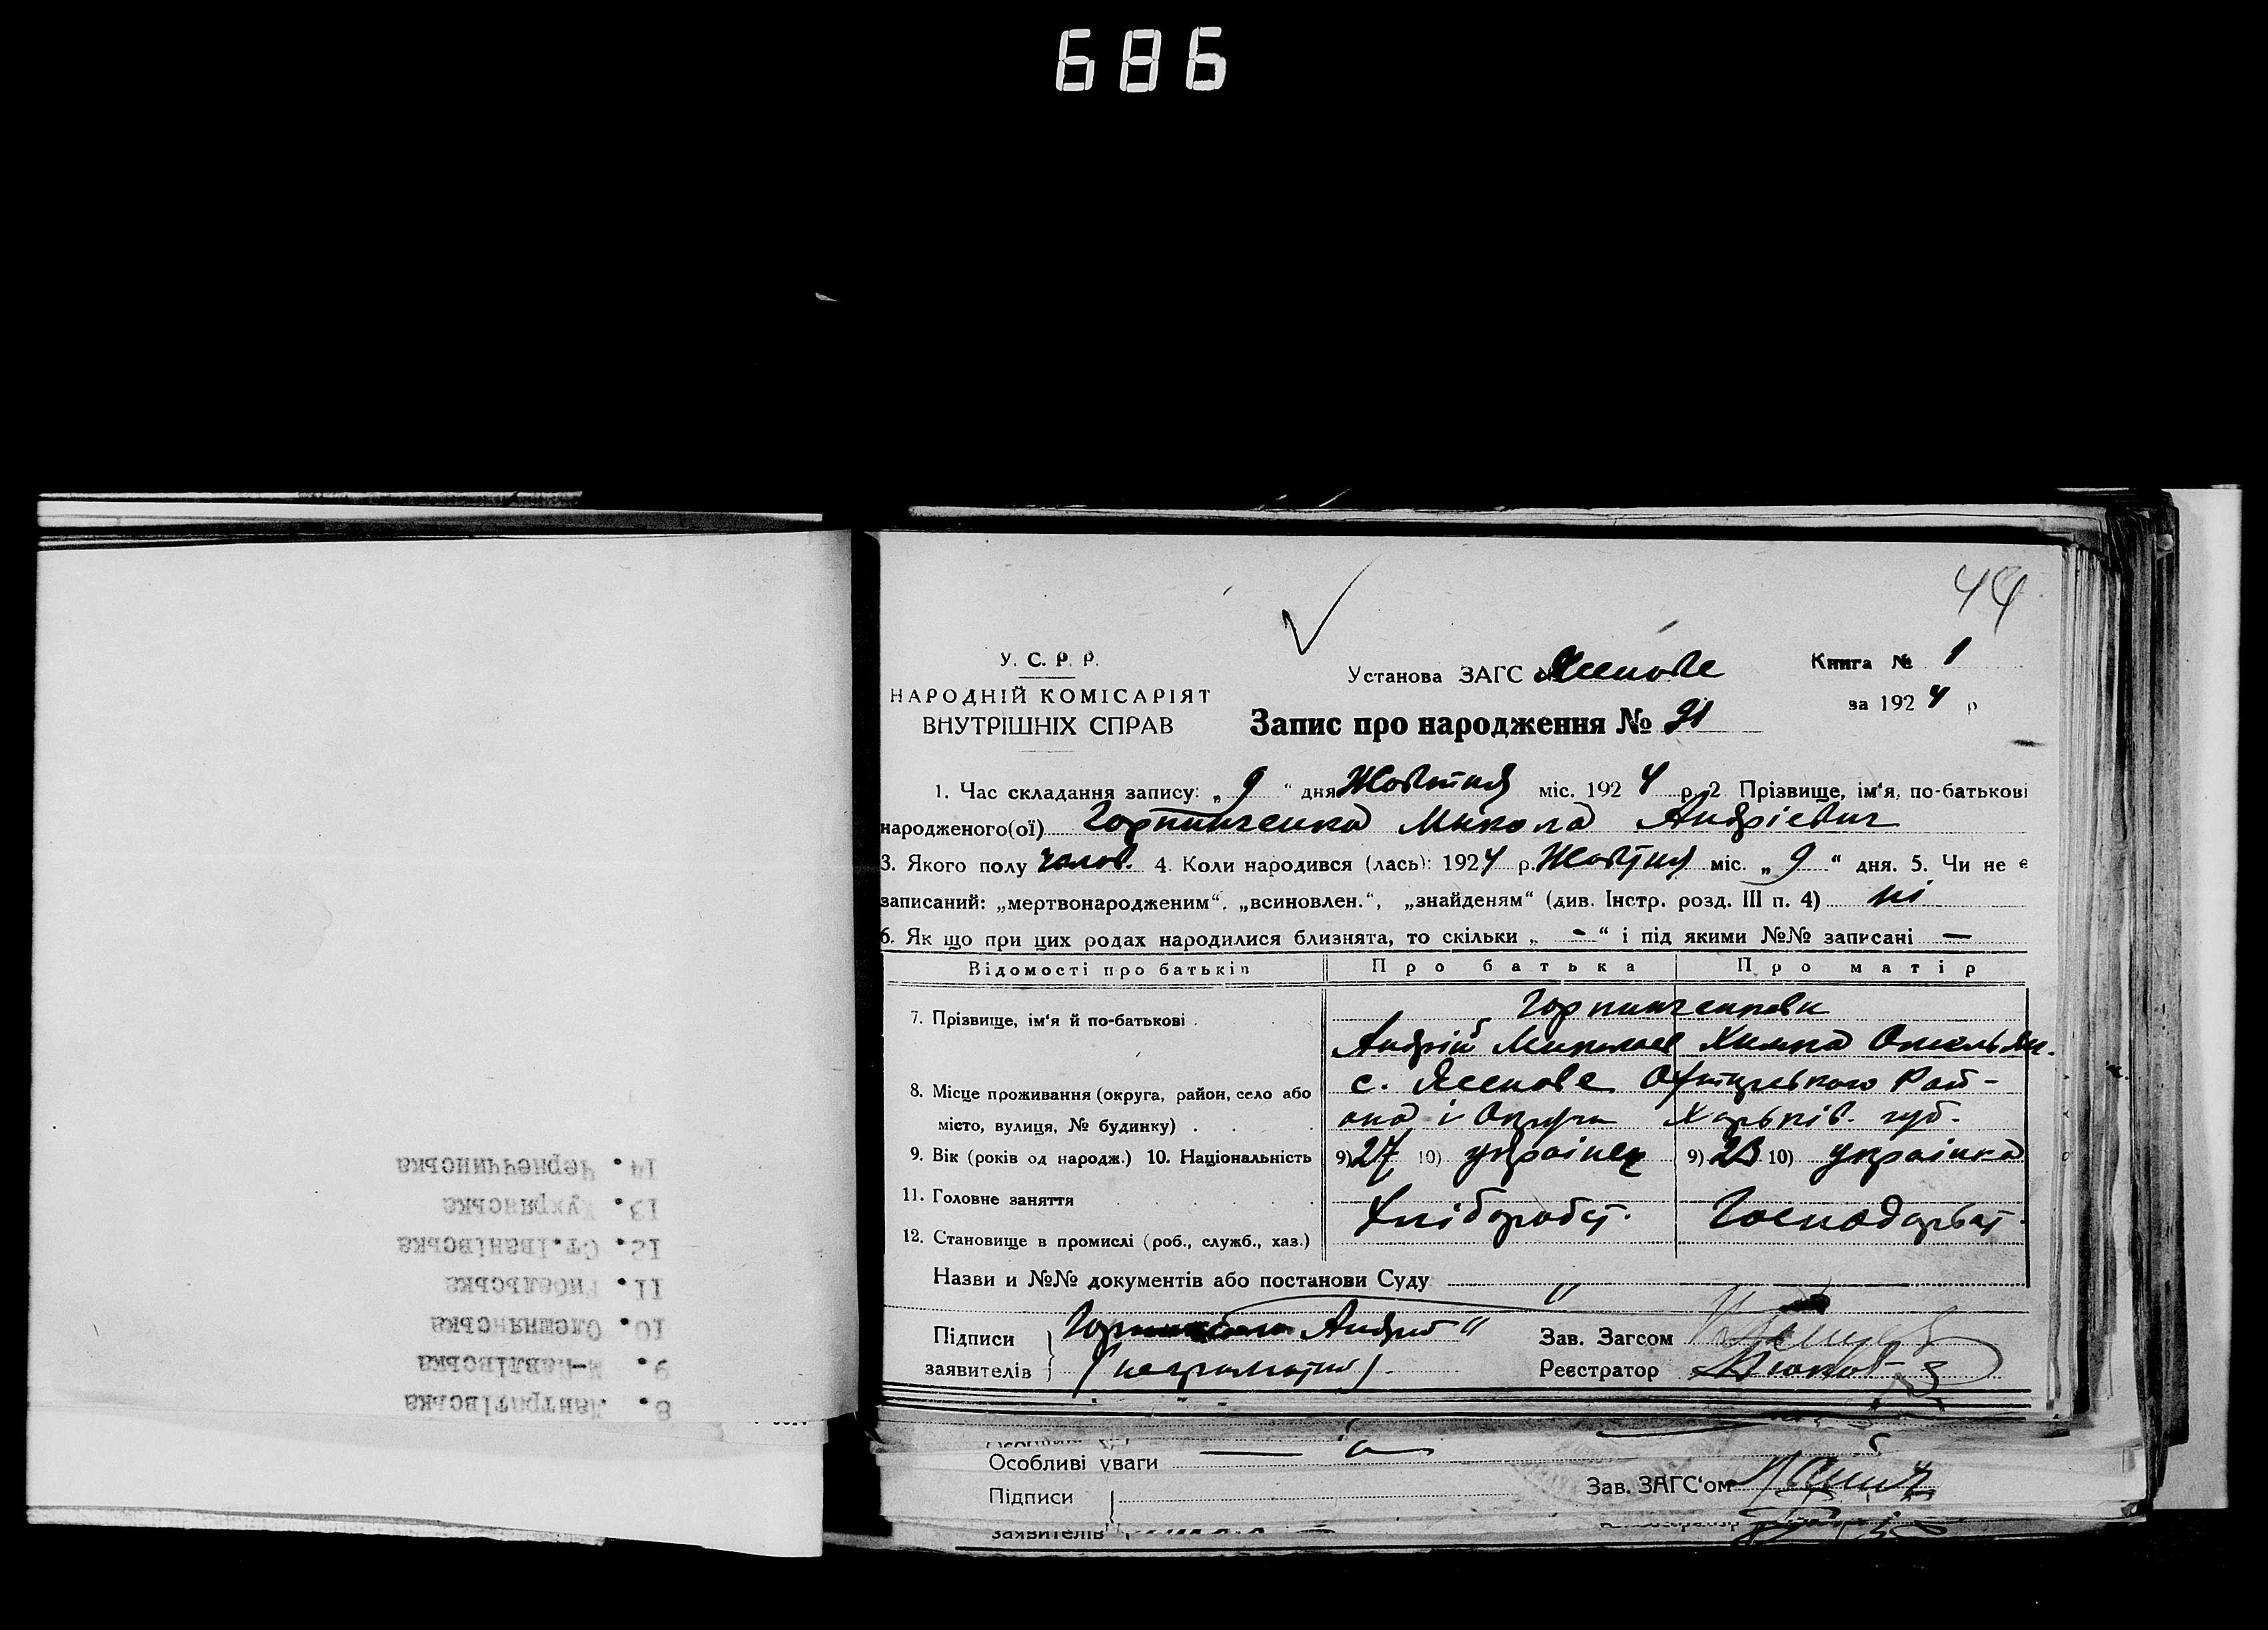 686
44
У. С. Р. Р.
НАРОДНІЙ КОМІСАРІЯТ
ВНУТРІШНІХ СПРАВ
Установа ЗАГС Ясенове
Книга № 1
за 1924 р
Запис про народження № 91
1. Час складання запису: „ 9 “ дня Жовтня міс. 1924 р. 2 Прізвище, ім‘я, по-батькові
народженого(ої) Горпинченко Микола Андрієвич
3. Якого полу чолов. 4. Коли народився (лась): 1924 р. Жовтня міс. „ 9 “ дня. 5. Чи не є
записаний: „мертвонародженим“, „всиновлен.“, „знайденям“ (див. Інстр. розд. III п. 4) ні
6. Як що при цих родах народилися близнята, то скільки „ - “ і під якими №№ записані —
Відомості про батьків Про батька Про матір
Горпинченкови
7. Прізвище, ім‘я й по-батькові .
Андрій Миколаев Химка Омельян.
с. Ясенове Охтирського Рай-
8. Місце проживання (округа, район, село або
она і Округи Харьків. губ.
місто, вулиця, № будинку) .
9. Вік (років од народж.) 10. Національність 9) 27 10) українец 9) 23 10) українка
11. Головне заняття
Хліборобст. Господарст.
12. Становище в промислі (роб., служб., хаз.)
Назви и №№ документів або постанови Суду
Підписи Андрій Зав. Загсом
заявителів (неграмотний) Реєстратор
Особливі уваги
Підписи Зав. ЗАГС‘ом
заявителів
14. Чернеччинська
13. Хухрянська
12. Ст.Іванівська
11. Рибальська
10. Олешнянська
9. М-Павлівська
8. Лантратівська